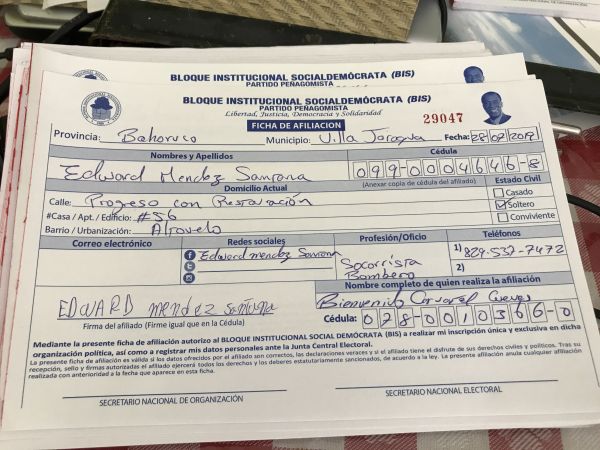 BLOQUE INSTITUCIONAL SOCIALDEMÓCRATA (BIS)
PARTIDO PEÑAGOMISTA
BLOQUE INSTITUCIONAL SOCIALDEMÓCRATA (BIS)
PARTIDO PEÑAGOMISTA
Libertad, Justicia, Democracia y Solidaridad
29047
FICHA DE AFILIACION
Provincia: Bahoruco Municipio: Villa Jaragua Fecha: 28/02/2019
Nombres y Apellidos Cédula
Edward Mendez Santana 099-0004646-8
Domicilio Actual (Anexar copia de cédula del afiliado) Estado Civil
Calle: Progreso con Restauración Casado
#Casa / Apt. / Edificio: #56 Soltero
Barrio / Urbanización: Conviviente
Correo electrónico Redes sociales Profesión/Oficio Teléfonos
Edward mendez Santana Socorrista 1) 829-537-7472
Bombero 2)
Nombre completo de quien realiza el afiliación
EDWARD mendez santana Bienvenido Cuevas
Firma del afiliado (Firme igual que en la Cédula) Cédula: 078-0010366-0
Mediante la presente ficha de afiliación autorizo al BLOQUE INSTITUCIONAL SOCIAL DEMÓCRATA (BIS) a realizar mi inscripción única y exclusiva en dicha
organización política, así como a registrar mis datos personales ante la Junta Central Electoral.
La presente ficha de afiliación es válida si los datos ofrecidos por el afiliado son correctos, las declaraciones veraces y si el afiliado tiene el disfrute de sus derechos civiles y políticos. Tras su
recepción, sello y firmas autorizadas el afiliado ejercerá todos los derechos y los deberes estatutariamente sancionados, de acuerdo a la ley. La presente afiliación anula cualquier afiliación
realizada con anterioridad a la fecha que aparece en esta ficha.
SECRETARIO NACIONAL DE ORGANIZACIÓN SECRETARIO NACIONAL ELECTORAL